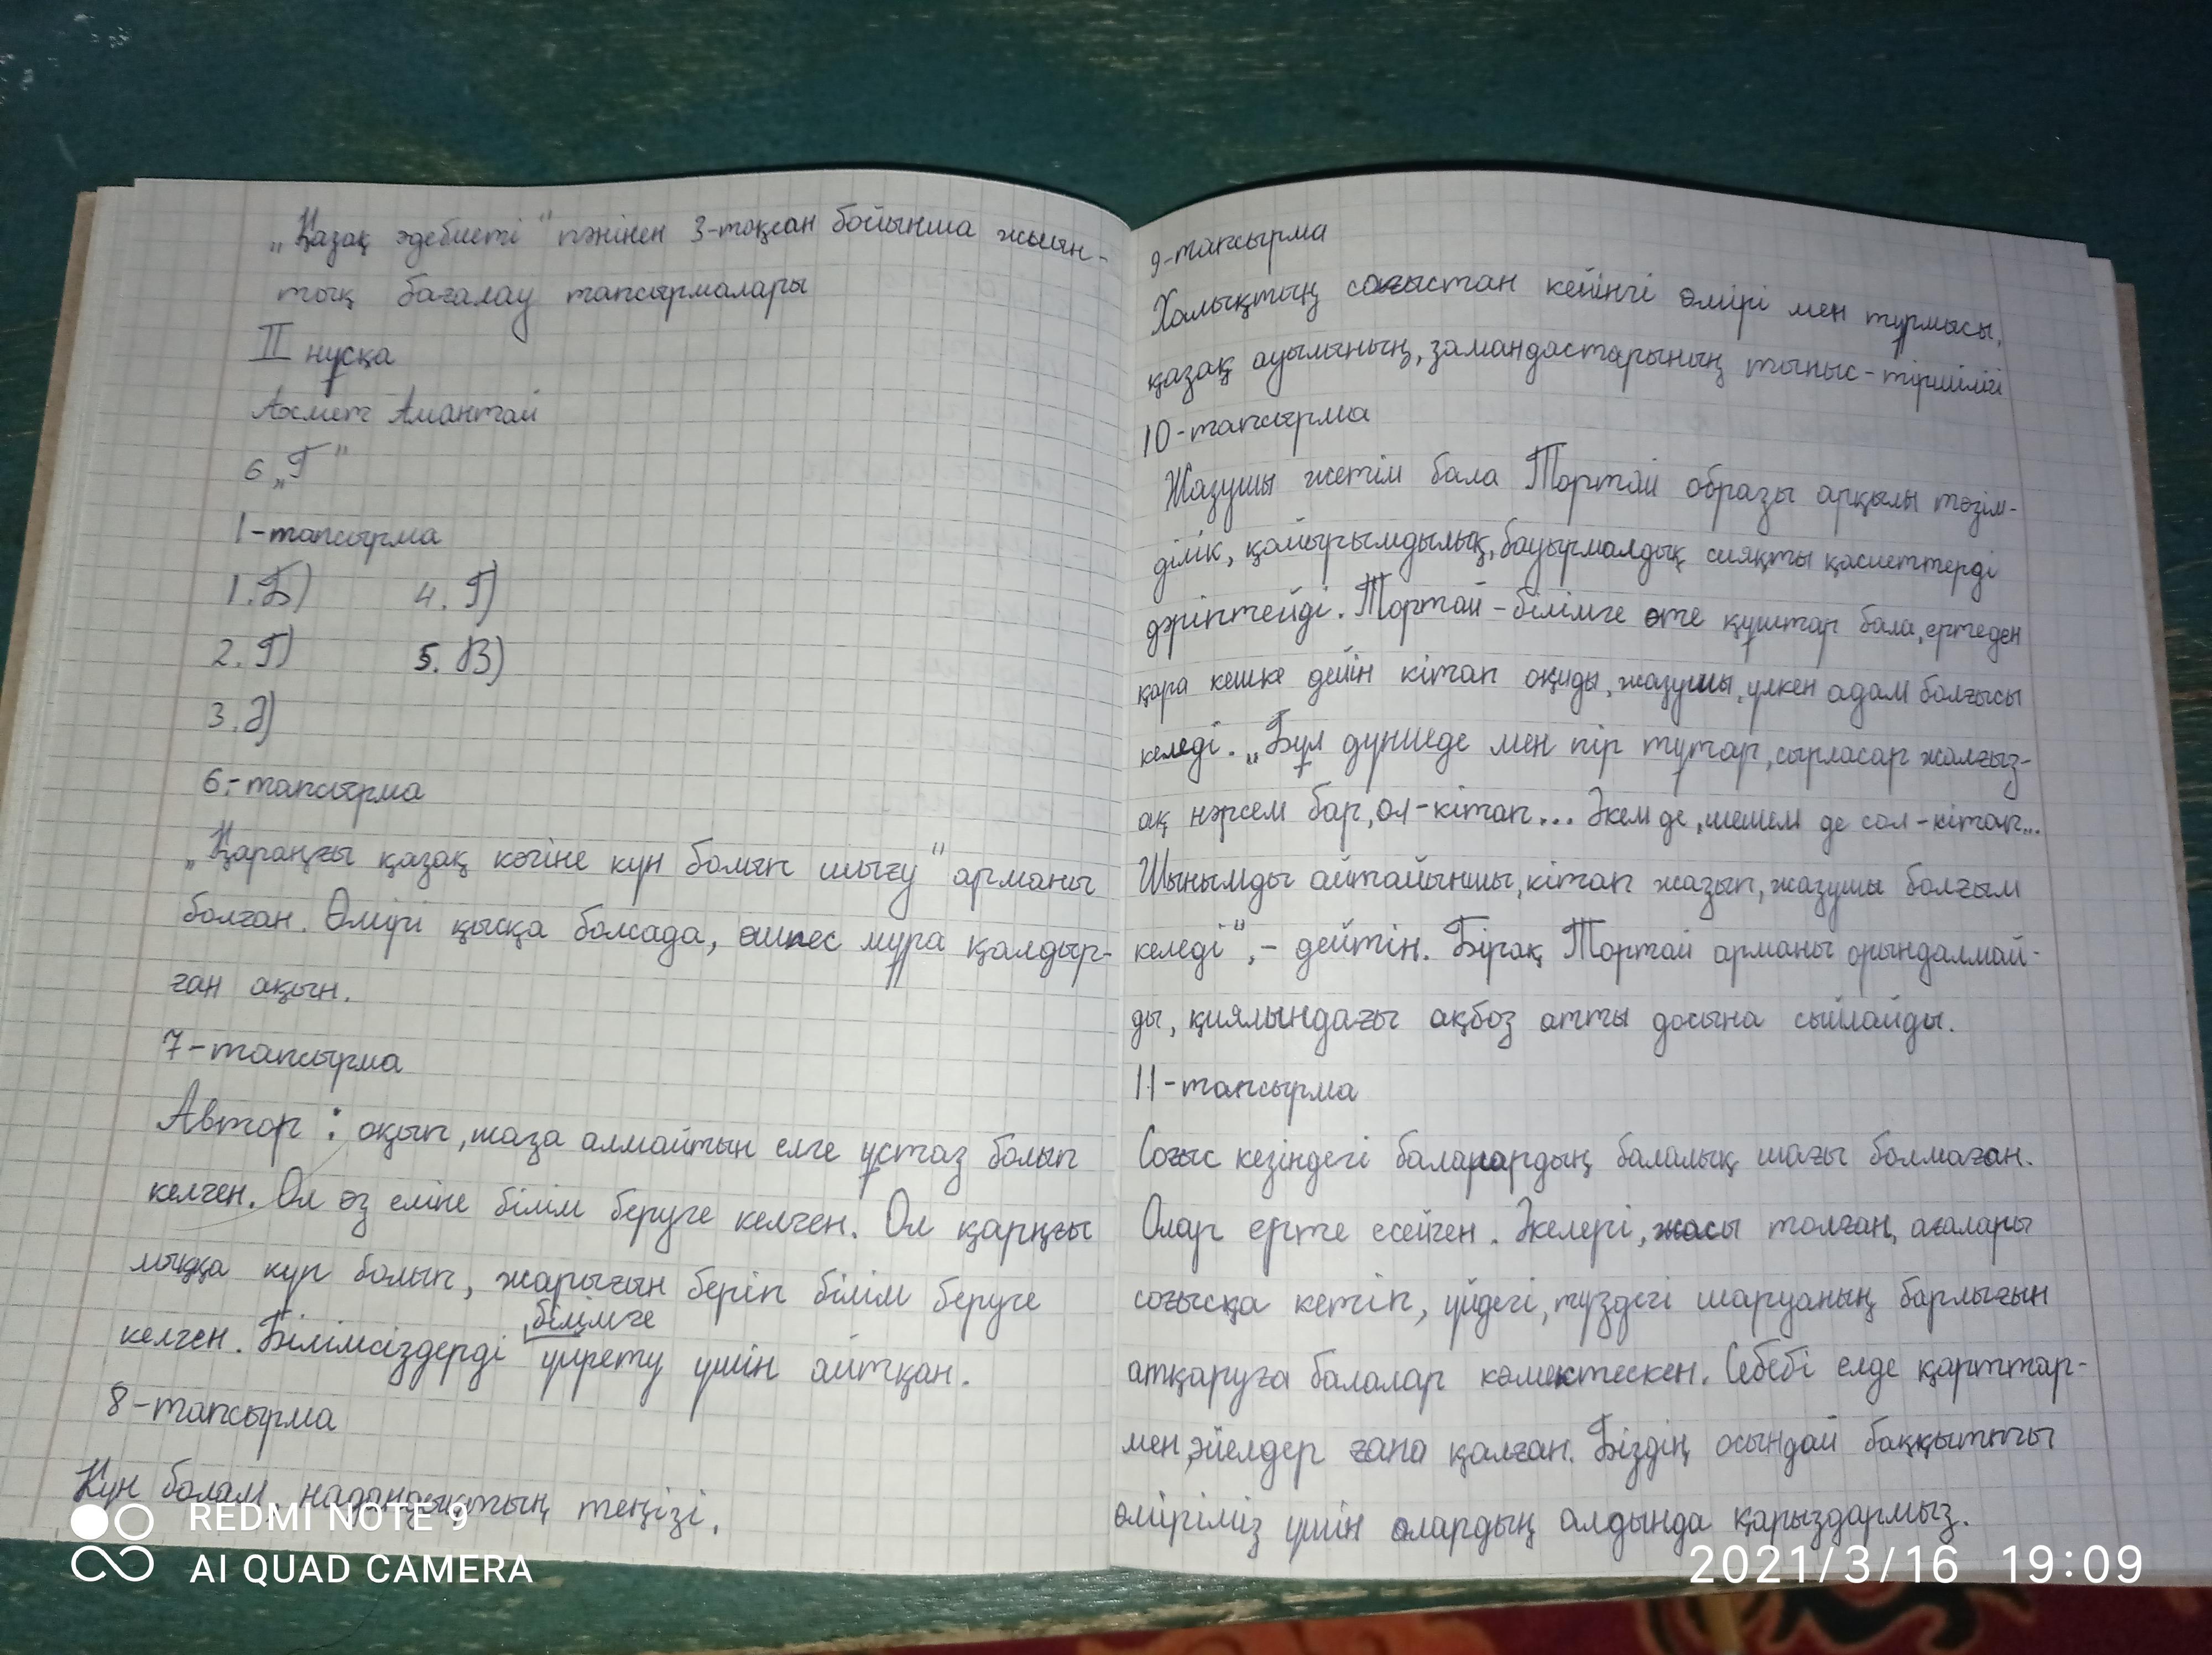 „Қазақ әдебиеті" пәнінен 3-тоқсан бойынша жиын-
тық бағалау тапсырмалары
II нұсқа
Ахмет Амантай
6 „Г"
1-тапсырма
1. Б) 4. Г)
2. Г) 5. В)
3. Ә)
6-тапсырма
„Қараңғы қазақ көгіне күн болып шығу" арманы
болған. Өмірі қысқа болсада, өшпес мұра қалдыр-
ған ақын.
7-тапсырма
Автор: оқып, жаза алмайтын елге ұстаз болып
келген. Ол өз еліне білім беруге келген. Ол қарңғы
лыққа күн болып, жарығын беріп білім беруге
келген. Білімсіздерді білімге үйрету үшін айтқан.
8-тапсырма
Күн болам, надандықтың теңізі.
9-тапсырма
Халықтың соғыстан кейінгі өмірі мен тұрмысы,
қазақ ауылының, замандастарының тыныс-тіршілігі
10-тапсырма
Жазушы жетім бала Тортай образы арқылы төзім-
ділік, қайырымдылық, бауырмалдық сияқты қасиеттерді
дәріптейді. Тортай-білімге өте құштар бала, ертеден
қара кешке дейін кітап оқиды, жазушы, үлкен адам болғысы
келеді. „Бұл дүниеде мен пір тұтар, сырласар жалғыз-
ақ нәрсем бар, ол-кітап... Әкем де, шешем де сол-кітап...
Шынымды айтайыншы, кітап жазып, жазушы болғым
келеді", - дейтін. Бірақ Тортай арманы орындалмай-
ды, қиялындағы ақбоз атты досына сыйлайды.
11-тапсырма
Соғыс кезіндегі балалардың балалық шағы болмаған.
Олар ерте есейген. Әкелері, жасы толған, ағалары
соғысқа кетіп, үйдегі, түздегі шаруаның барлығын
атқаруға балалар көмектескен. Себебі елде қарттар-
мен, әйелдер ғана қалған. Біздің осындай баққытты
өміріміз үшін олардың алдында қарыздармыз.
REDMI NOTE 9
AI QUAD CAMERA
2021/3/16 19:09